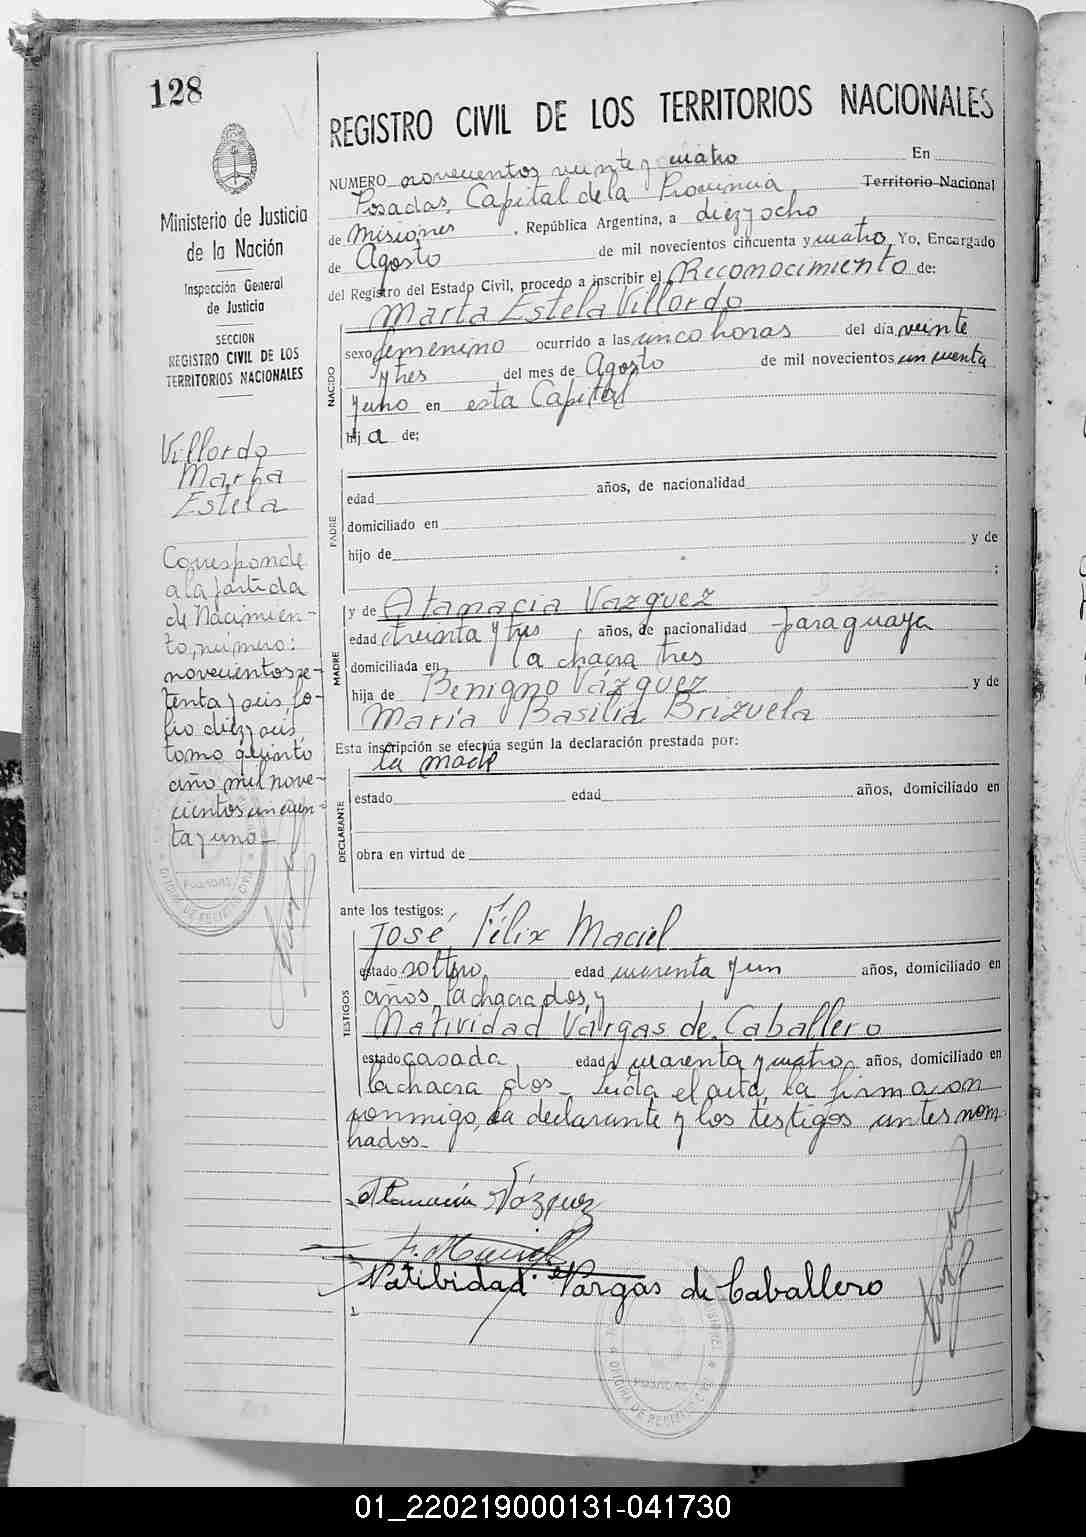 128
REGISTRO CIVIL DE LOS TERRITORIOS NACIONALES
Ministerio de Justicia
de la Nación
Inspección General
de Justicia
SECCION
REGISTRO CIVIL DE LOS
TERRITORIOS NACIONALES
Villordo
Marta
Estela
Corresponde
a la partida
de Nacimien-
to, número:
novecientos se-
tenta y seis, fo-
lio diez y seis,
tomo quinto
año mil nove-
cientos cincuen-
ta y uno-
NUMERO novecientos veinte y cuatro En
Posadas, Capital de la Provincia Territorio Nacional
de Misiones, República Argentina, a diez y ocho
de Agosto de mil novecientos cincuenta y cuatro Yo, Encargado
del Registro del Estado Civil, procedo a inscribir el Reconocimiento de:
NACIDO
Marta Estela Villordo
sexo femenino ocurrido a las cinco horas del día veinte
y tres del mes de Agosto de mil novecientos cincuenta
y uno en esta Capital
hij a de:
PADRE
edad años, de nacionalidad
domiciliado en
hijo de y de
;
MADRE
y de Atanacia Vazquez
edad treinta y tres años, de nacionalidad paraguaya
domiciliada en la chacra tres
hija de Benigno Vázquez y de
María Basilia Brizuela
Esta inscripción se efectúa según la declaración prestada por:
la madre
DECLARANTE
estado edad años, domiciliado en
obra en virtud de
ante los testigos:
TESTIGOS
José Félix Maciel
estado soltero, edad cuarenta y un años, domiciliado en
años, la chacra dos, y
Natividad Vargas de Caballero
estado casada, edad cuarenta y cuatro años, domiciliado en
la chacra dos- Leida el acta, la firmaron
conmigo, la declarante y los testigos antes nom
brados-
Atanacia Vázquez
F. Maciel
Natibidad Vargas de Caballero
OFICINA DE REGISTRO CIVIL
POSADAS
01_220219000131-041730